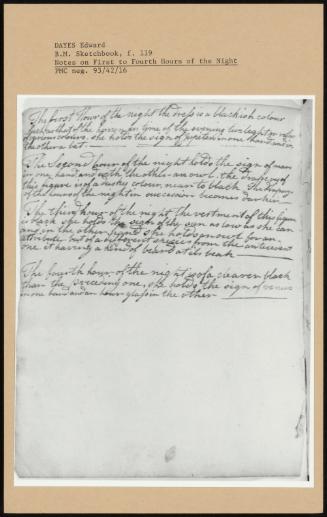 DAYES Edward
B.M. Sketchbook, f. 119
Notes on First to Fourth Hours of the Night
PMC neg. 93/42/16
The first Hour of the night the dress is a blackish colour
such as that of the horizon in time of the evening twilight or
colours, she holds the sign of Jupiter in one hand and in
the other a bat.
The Second hour of the night holds the sign of mars
in one hand and with the other an owl. the drapery of
this figure is of a dusky colour, near to black. The drapery
of the hours of the night in succession becomes darker
The third hour of the night the vestment of this figure
is black she holds the sign of the sun as low as she can
and in the other hand she holds an owl for an
attribute but of a different species from the antecedent
one it having a kind of beard at its beak
The fourth hour of the night is of a clearer black
than the preceeding one, she holds the sign of venus
in one hand and an hour glass in the other